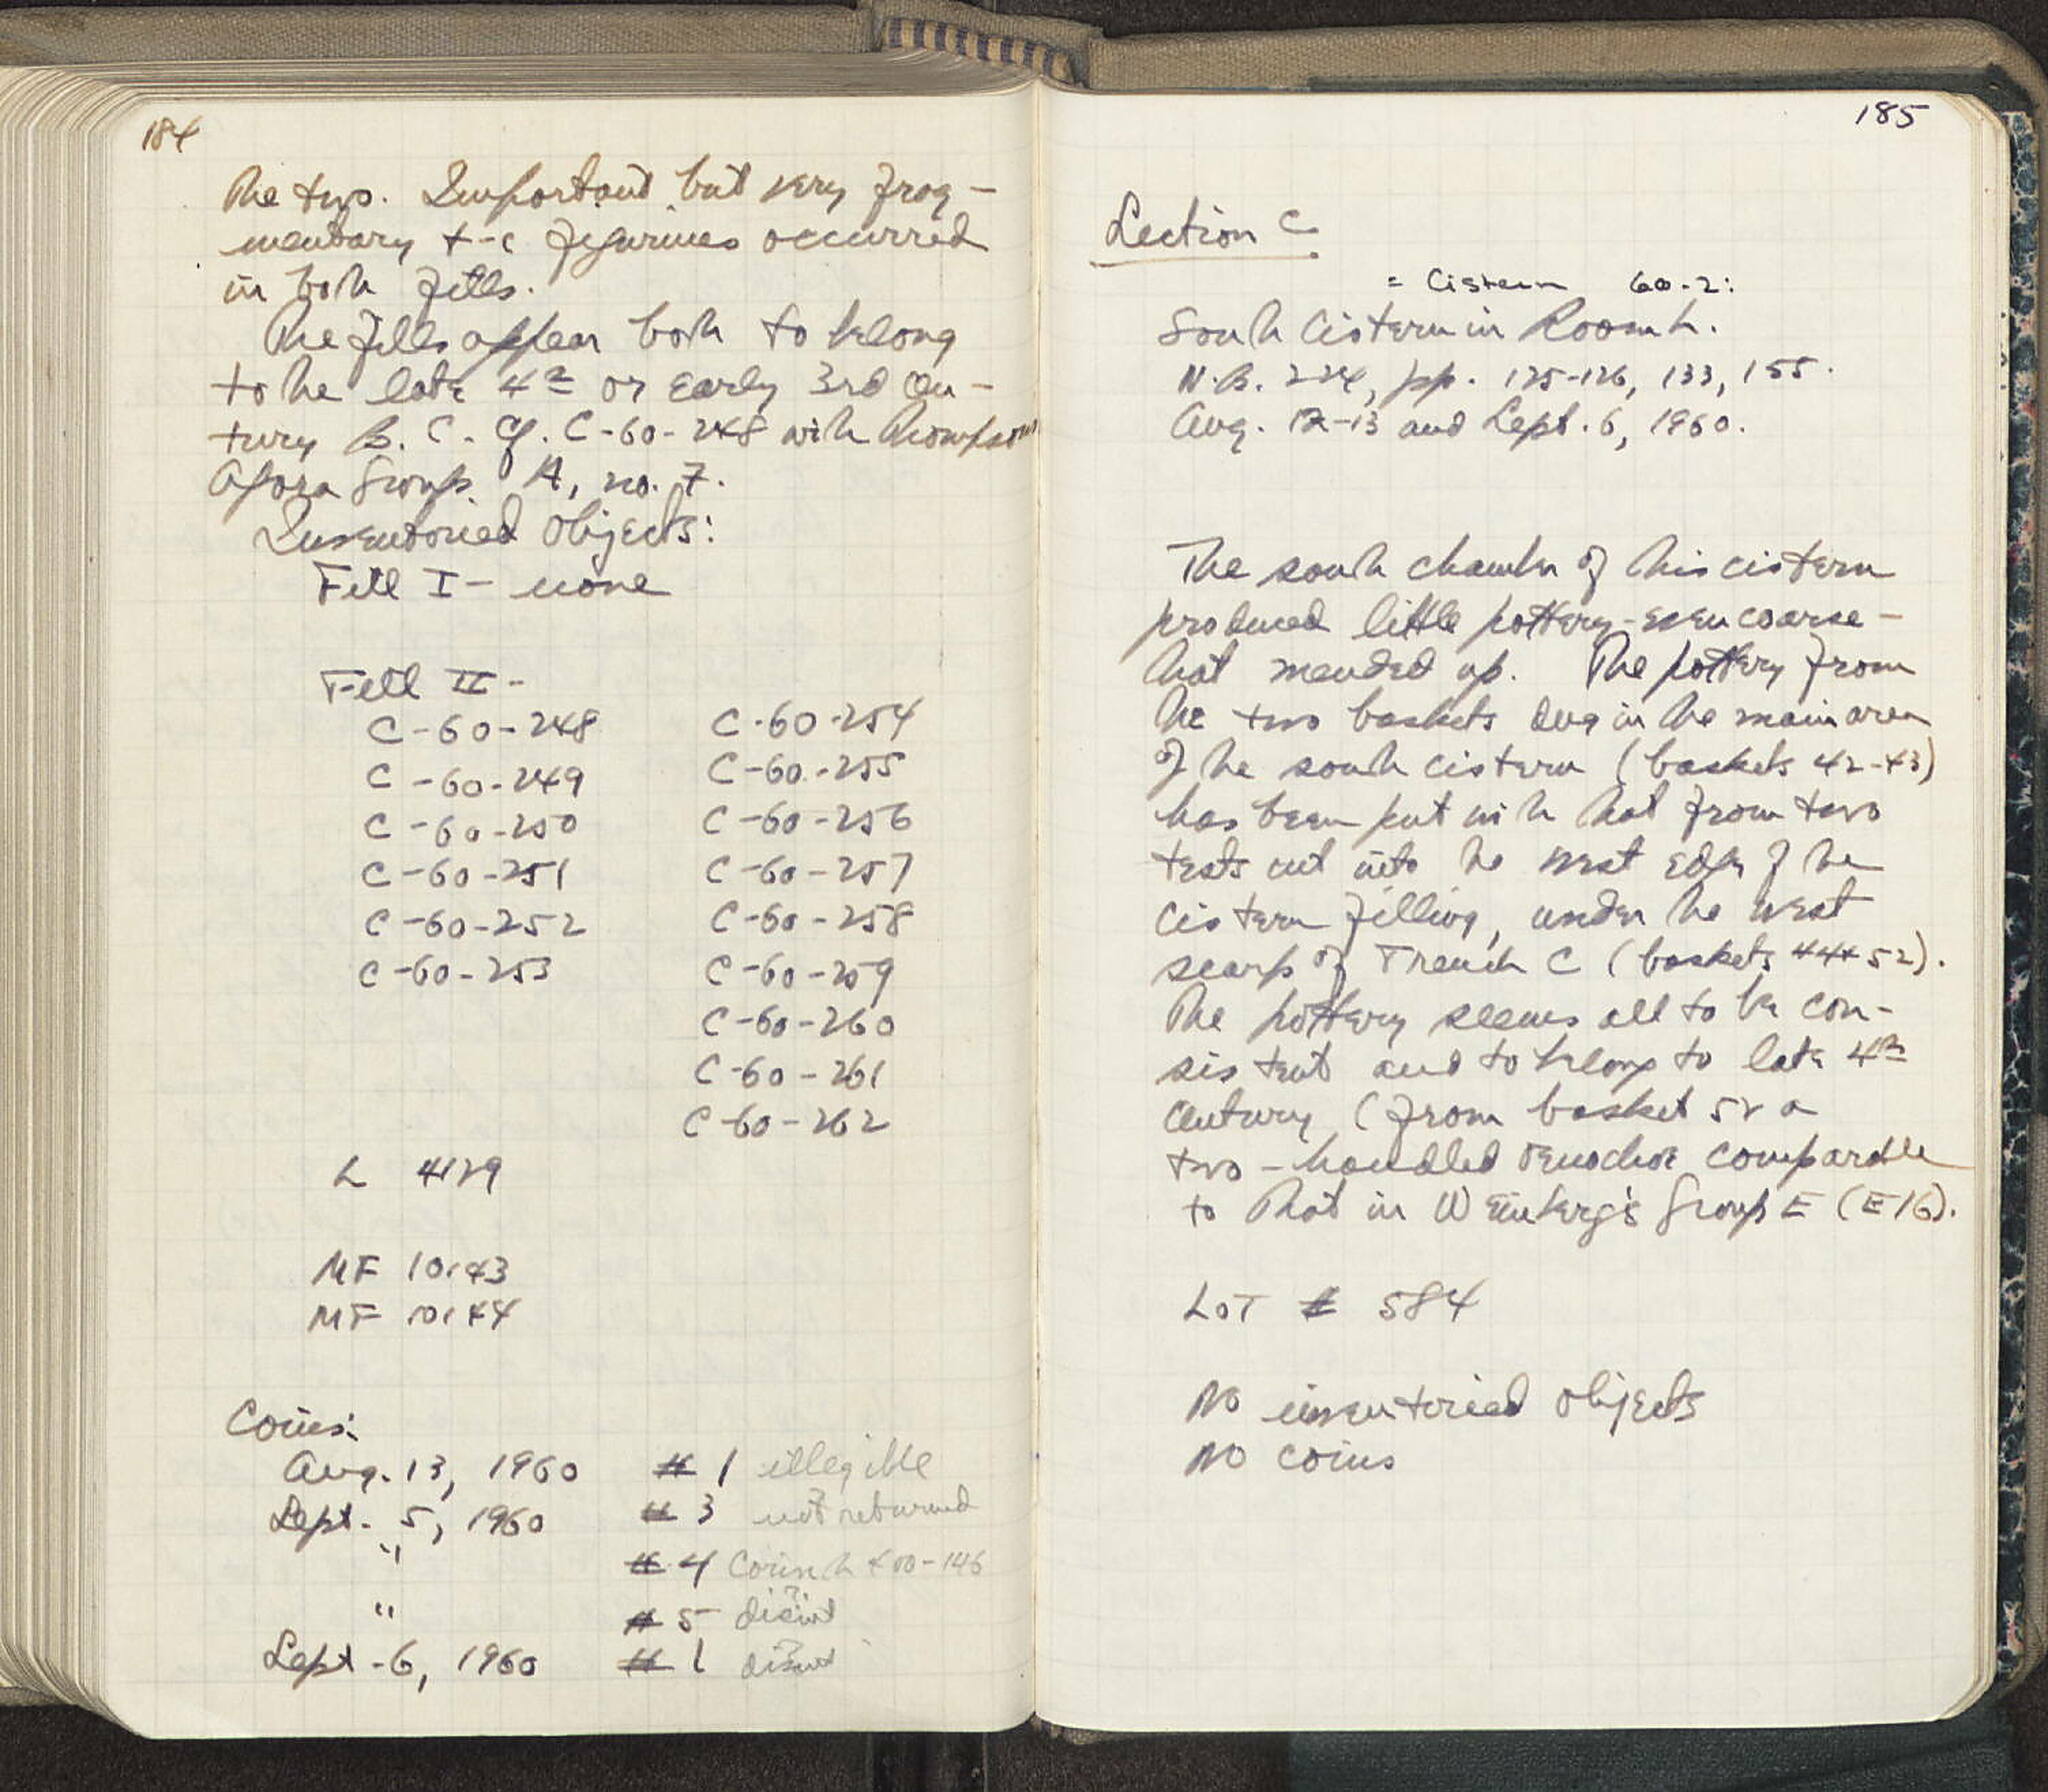 184
The two. Important but very frag-
mentary t-c figurines occurred
in both fills.
The fills appear both to belong
to the late 4th or early 3rd cen-
tury B.C. Cf. C-60-248 with Thompson
Agora Group A, no. 7.
Inventoried Objects:
Fill I - none
Fill II -
C-60-248
C-60-249
C-60-250
C-60-251
C-60-252
C-60-253
C-60-254
C-60-255
C-60-256
C-60-257
C-60-258
C-60-259
C-60-260
C-60-261
C-60-262
L 4129
MF 10143
MF 10144
Coins:
Aug. 13, 1960 # 1 illegible
Sept. 5, 1960 # 3 not returned
" # 4 Corinth 400-146
" # 5 disint
Sept. 6, 1960 # 1 disint
185
Section C
= Cistern 60-2:
South Cistern in Room L.
N.B. 224, pp. 125-126, 133, 155.
Aug. 12-13 and Sept. 6, 1960.
The south chamber of this cistern
produced little pottery - even coarse -
that mended up. The pottery from
the two baskets dug in the main area
of the south cistern (baskets 42-43)
has been put with that from two
tests cut into the west edge of the
cistern filling, under the west
scarp of Trench C (baskets 44+52).
The pottery seems all to be con-
sistent and to belong to late 4th
century (from basket 52 a
two-handled oenochoe comparable
to that in Weinberg's Group E (E16).
LOT # 584
No inventoried objects
No coins